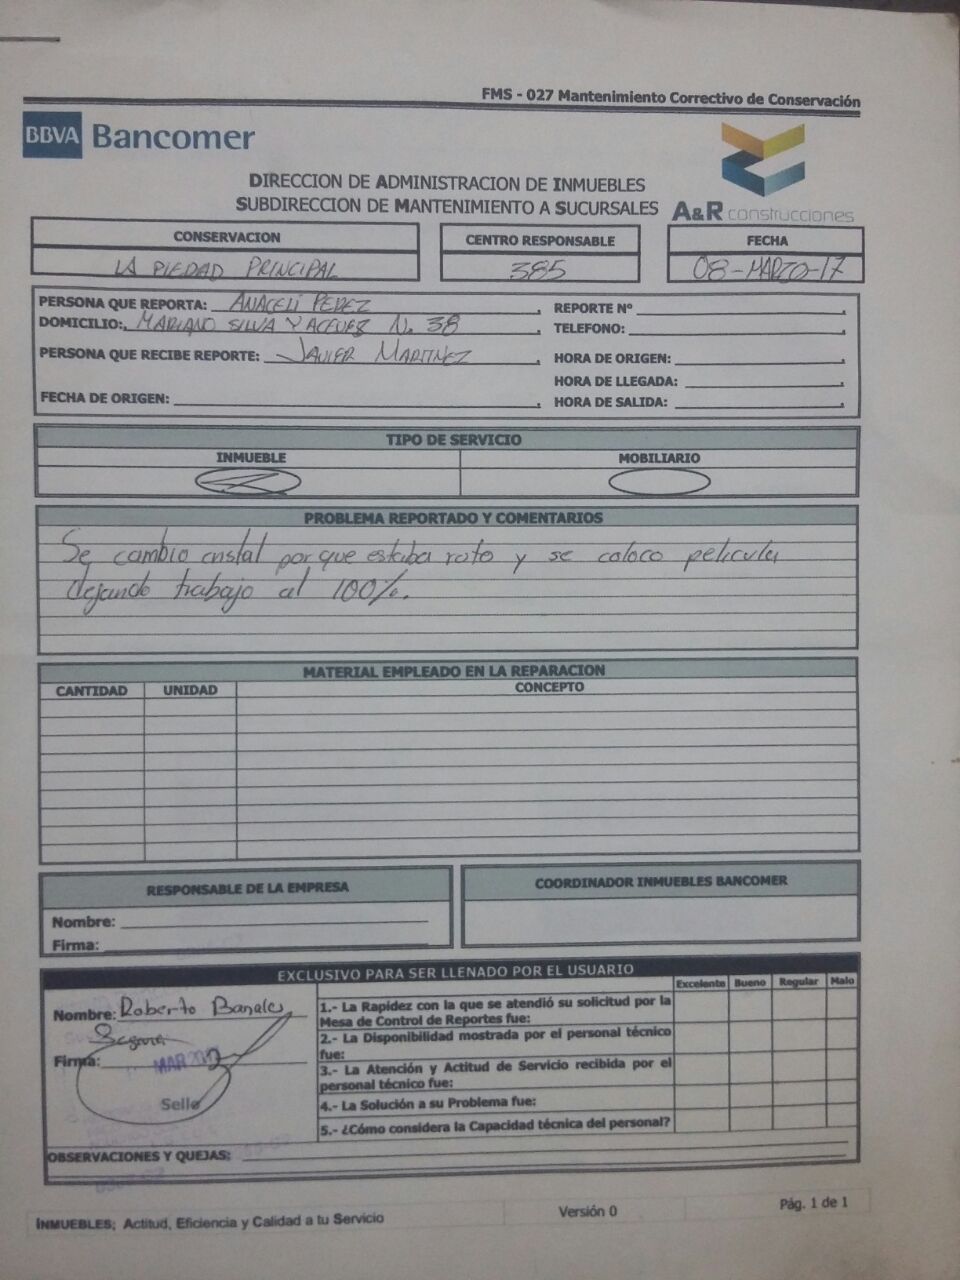 FMS - 027 Mantenimiento Correctivo de Conservación
BBVA Bancomer
DIRECCION DE ADMINISTRACION DE INMUEBLES
SUBDIRECCION DE MANTENIMIENTO A SUCURSALES
A&R construcciones
CONSERVACION
LA PIEDAD PRINCIPAL
CENTRO RESPONSABLE
385
FECHA
08-MARZO-17
PERSONA QUE REPORTA: ANACELI PEREZ
REPORTE Nº
DOMICILIO: MARIANO SILVA Y ACEVES N. 38
TELEFONO:
PERSONA QUE RECIBE REPORTE: JAVIER MARTINEZ
HORA DE ORIGEN:
HORA DE LLEGADA:
FECHA DE ORIGEN:
HORA DE SALIDA:
TIPO DE SERVICIO
INMUEBLE
MOBILIARIO
PROBLEMA REPORTADO Y COMENTARIOS
Se cambio cristal por que estaba roto y se coloco pelicula
dejando trabajo al 100%.
MATERIAL EMPLEADO EN LA REPARACION
CANTIDAD UNIDAD CONCEPTO
RESPONSABLE DE LA EMPRESA
Nombre:
Firma:
COORDINADOR INMUEBLES BANCOMER
EXCLUSIVO PARA SER LLENADO POR EL USUARIO
Excelente Bueno Regular Malo
Nombre: Roberto Banales
Segovia
Firma:
MAR 2017
Sello
1.- La Rapidez con la que se atendió su solicitud por la
Mesa de Control de Reportes fue:
2.- La Disponibilidad mostrada por el personal técnico
fue:
3.- La Atención y Actitud de Servicio recibida por el
personal técnico fue:
4.- La Solución a su Problema fue:
5.- ¿Cómo considera la Capacidad técnica del personal?
OBSERVACIONES Y QUEJAS:
INMUEBLES; Actitud, Eficiencia y Calidad a tu Servicio
Versión 0
Pág. 1 de 1